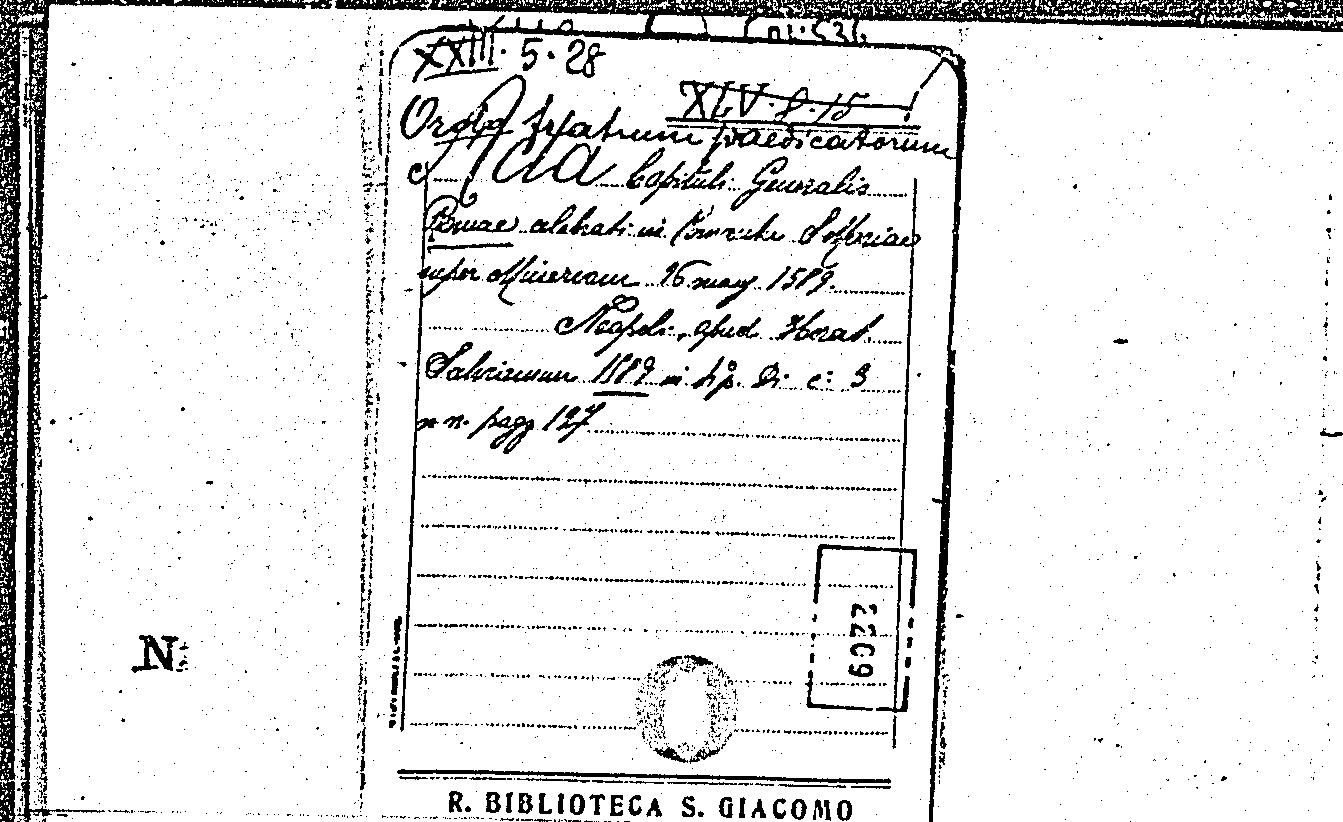 XXIII. 5. 28
XLV. 8. 15
Ordo fratrum praedicatorum
Acta Capituli Generalis
Romae celebrati in Conventu S.
super Minervam 26 maij 1589.
Neapoli, apud Horat.
Salvianum 1589 in
n n. pagg 127
2209
N
R. BIBLIOTECA S. GIACOMO